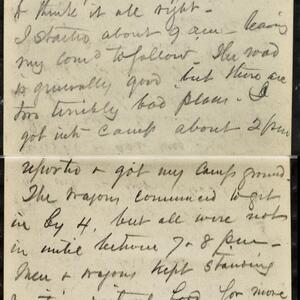 think it all right -
I started about 9 am - leaving
my com'd to follow. The road
is generally good but there are
two terribly bad places. I
got into camp about 2 pm
reported & got my camp ground.
The wagons commenced to get
in by 4, but all were not
in until between 7 & 8 pm -
Men & wagons kept standing
for more